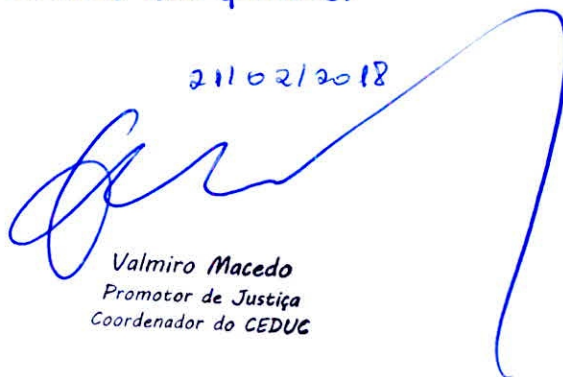 21/02/2018
Valmiro Macedo
Promotor de Justiça
Coordenador do CEDUC